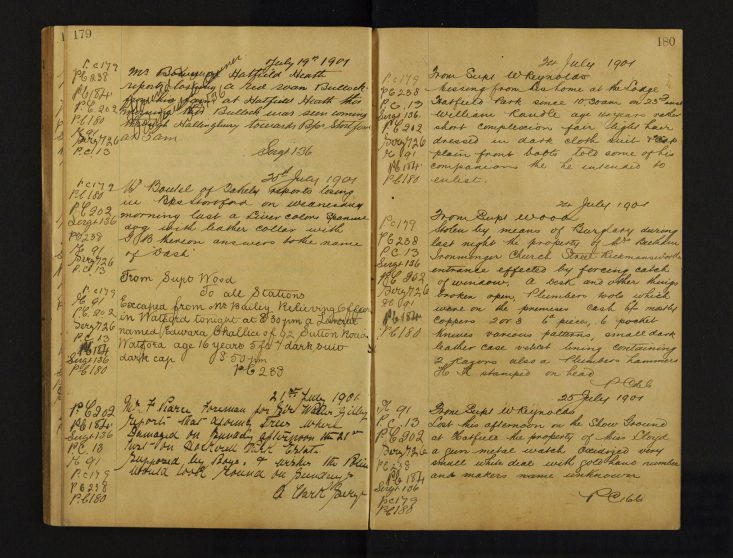 179
July 19th 1901
Mr Hatfield Heath
reports losing a Red roan Bullock
at Hatfield Heath this
morning this Bullock was seen coming
through Hallingbury towards Bps Stortford
at 5 am
Sergt 136
P.c 179
PC 238
PC 184
P.C. 202
PC 180
K 91
Serg 726
P.C 13
20th July 1901
W Boutel of Takely reports losing
in Bps Stortford on Wednesday
morning last a Liver color Spaniel
dog with leather collar with
thereon answers to the name
of Dash
P.c 179
PC 180
PC 202
Sergt 136
PC 238
K 91
Serg 726
P.C 13
From Supt Wood
To all Stations
Escaped from Mr Bailey Relieving Officer
in Watford tonight at 8.30 pm a Lunatic
named Edward Challice of 92 Sutton Road
Watford age 16 years 5 ft 7 dark suit
dark cap 8 50 pm
PC 233
P.c 179
K 91
P.C. 202
Serg 726
PC 13
PC 184
Sergt 136
PC 180
21st July 1901
Mr F Pearce Foreman for Sir Walter Gilbey
reports that a Young Trees where
Damaged on Sunday afternoon the 21st
inst on Estate
Supposed by Boys. & wishes the Police
would look round on Sundays
A Clark Sergt
PC 202
PC 184
Sergt 136
PC 13
K 91
Pc 179
PC 238
PC 180
180
24 July 1901
From Supt W Reynolds
Missing from his home at the Lodge
Hatfield Park since 10.30 am on 23rd inst
William Randle age years rather
short complexion fair light hair
dressed in dark cloth suit & cap
plain front boots told some of his
companions the he intended to
enlist.
Pc 179
PC 238
P.C. 13
Sergt 136
PC 202
Serg 726
K 91
PC 184
PC 180
24 July 1901
From Supt Wood
Stolen by means of Burglary during
last night the property of Mr Beckham
Ironmonger Church Street Rickmansworth
entrance effected by forcing catch
of window. A desk and other things
broken open, Plumbers tools which
were on the premises Cash £6 mostly
coppers 2 or 3 6d pieces, 6 pocket
knives various patterns, small dark
leather case velvet lining containing
2 Razors also a Plumbers hammers
H H stamped on head
PC 166
Pc 179
PC 238
PC 13
Sergt 136
PC 202
Serg 726
K 91
PC 184
PC 180
25 July 1901
From Supt W Reynolds
Lost this afternoon on the Show Ground
at Hatfield the property of Miss Lloyd
a gun metal watch very
small white dial with gold hand number
and makers name unknown
PC 166
K 91
P.C. 13
PC 202
Serg 726
PC 238
PC 184
Sergt 136
Pc 179
PC 180